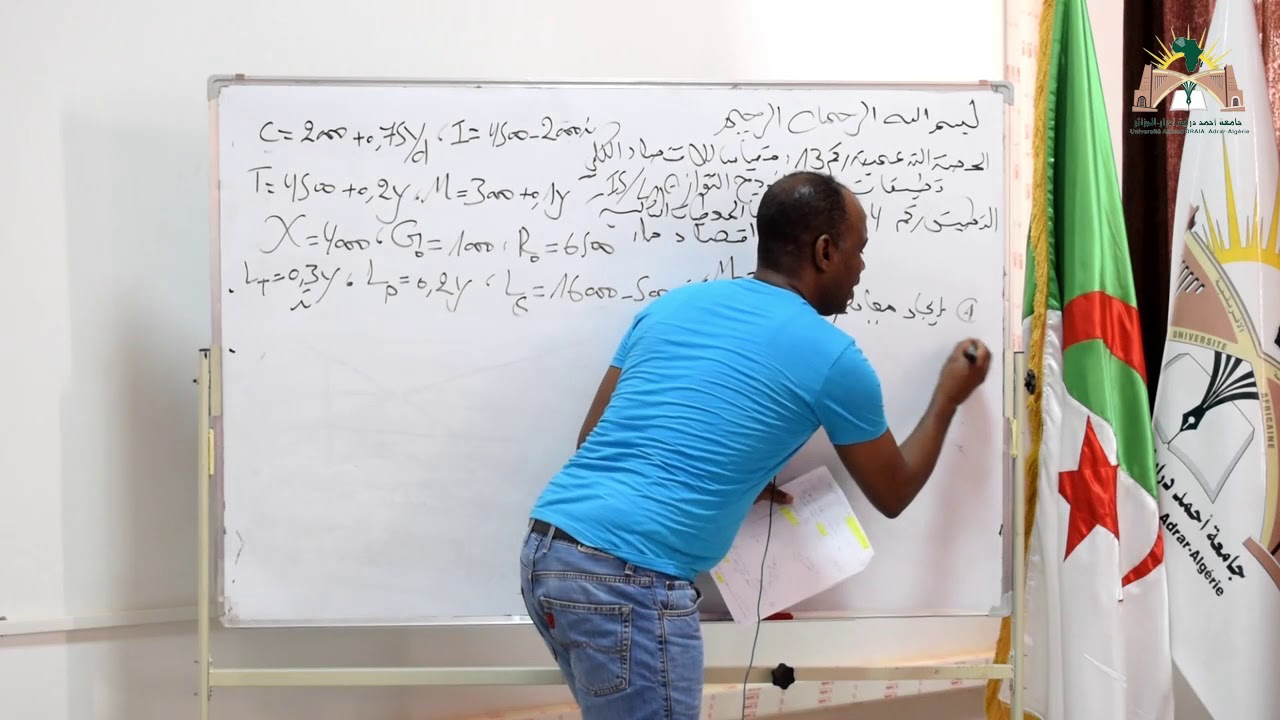 بسم الله الرحمان الرحيم
الحصة التدعيمية رقم 13: مقياس الاقتصاد الكلي
تطبيقات التوازن IS/LM
التطبيق رقم 4 المعطيات التالية
اقتصاد ما:
C = 2000 + 0,75yd I = 4500 - 2000i
T = 4500 + 0,2y ، M = 3000 + 0,1y
X = 4000 ، G₀ = 1000 ، R₀ = 6500
LT = 0,3y ، Lp = 0,2y ، Ls = 16000 - 500
① إيجاد
جامعة أحمد دراية أدرار-الجزائر
Université Ahmed DRAIA Adrar-Algérie
UNIVERSITE
AFRICAINE
الافريقية
جامعة أحمد درا
Adrar-Algérie